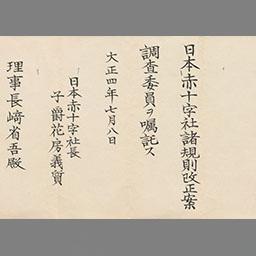 日本赤十字社諸規則改正案
調査委員ヲ嘱託ス
大正四年七月八日
日本赤十字社長
子爵花房義質
理事長﨑省吾殿